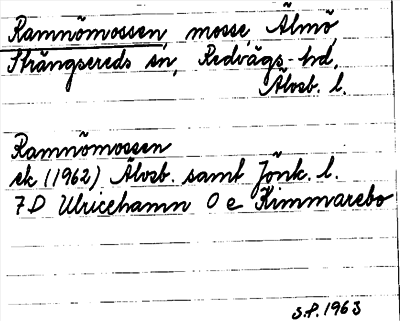 Ramnömossen, mosse, Älmö,
Strängsereds sn, Redvägs hd,
Älvsb. l.
Ramnömossen
ek (1962) Älvsb. samt Jönk. l.
7D Ulricehamn O e Kimmarebo
S.P. 1963